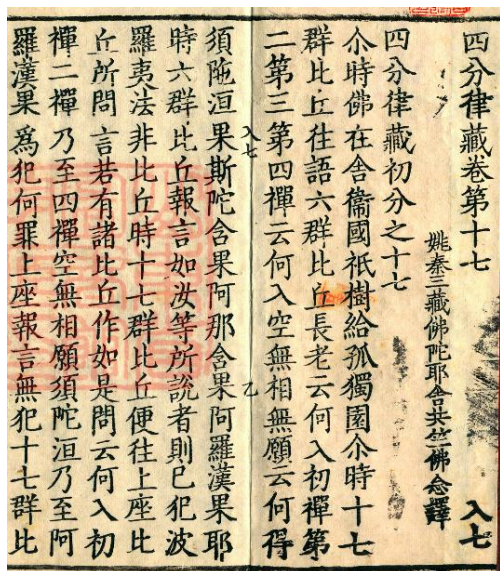 四分律藏卷第十七 入七
姚秦三藏佛陀耶舍共竺佛念譯
四分律藏初分之十七
尒時佛在舍衞國祇樹給孤獨園尒時十七
群比丘往語六群比丘長老云何入初禪第
二第三第四禪云何入空無相無願云何得
入七 乙
須陁洹果斯陀含果阿那含果阿羅漢果耶
時六群比丘報言如汝等所說者則已犯波
羅夷法非比丘時十七群比丘便往上座比
丘所問言若有諸比丘作如是問云何入初
禪二禪乃至四禪空無相願須陀洹乃至阿
羅漢果爲犯何罪上座報言無犯十七群比